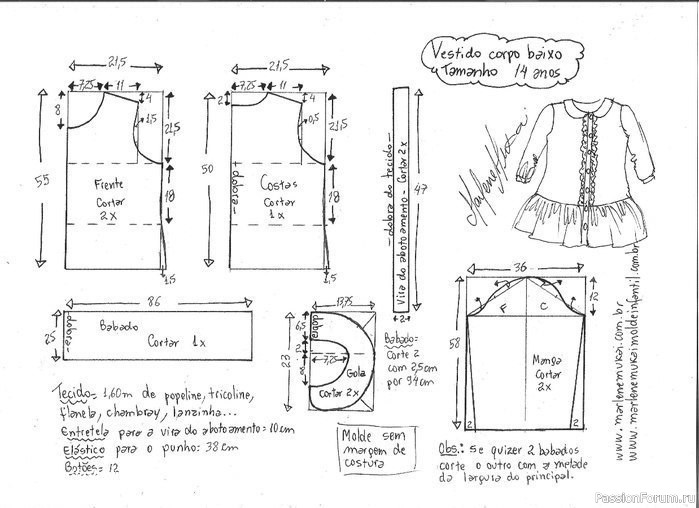 Vestido corpo baixo
Tamanho 14 anos
21,5
7,25
11
8
4
1,5
21,5
55
Frente
Cortar
2x
18
1,5
21,5
7,25
11
2
4
0,5
21,5
50
dobra
Costas
Cortar
1x
18
1,5
dobra do tecido
Vira do abotoamento - Cortar 2x
47
2
Marlene Mukai
86
25
dobra
Babado
Cortar 1x
13,75
dobra
6,5
2
23
7,25
8
Gola
Cortar 2x
Babado=
Corte 2
com 2,5cm
por 94cm
36
F
C
12
58
Manga
Cortar
2x
2
2
www.marlenemukai.com.br
www.marlenemukaimoldeinfantil.com.br
Tecido= 1,60m de popeline, tricoline,
flanela, chambray, lanzinha...
Entretela para a vira do abotoamento= 10cm
Elástico para o punho: 38cm
Botões= 12
Molde sem
margem de
costura
Obs.: Se quizer 2 babados
corte o outro com a metade
da largura do principal.
PassionForum.ru